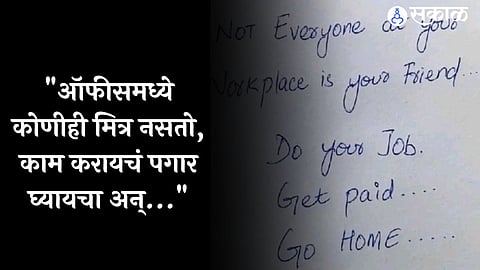 सकाळ
"ऑफीसमध्ये
कोणीही मित्र नसतो,
काम करायचं पगार
घ्यायचा अन्..."
NOT Everyone at your
Workplace is your Friend...
Do your Job.
Get paid....
Go HOME......